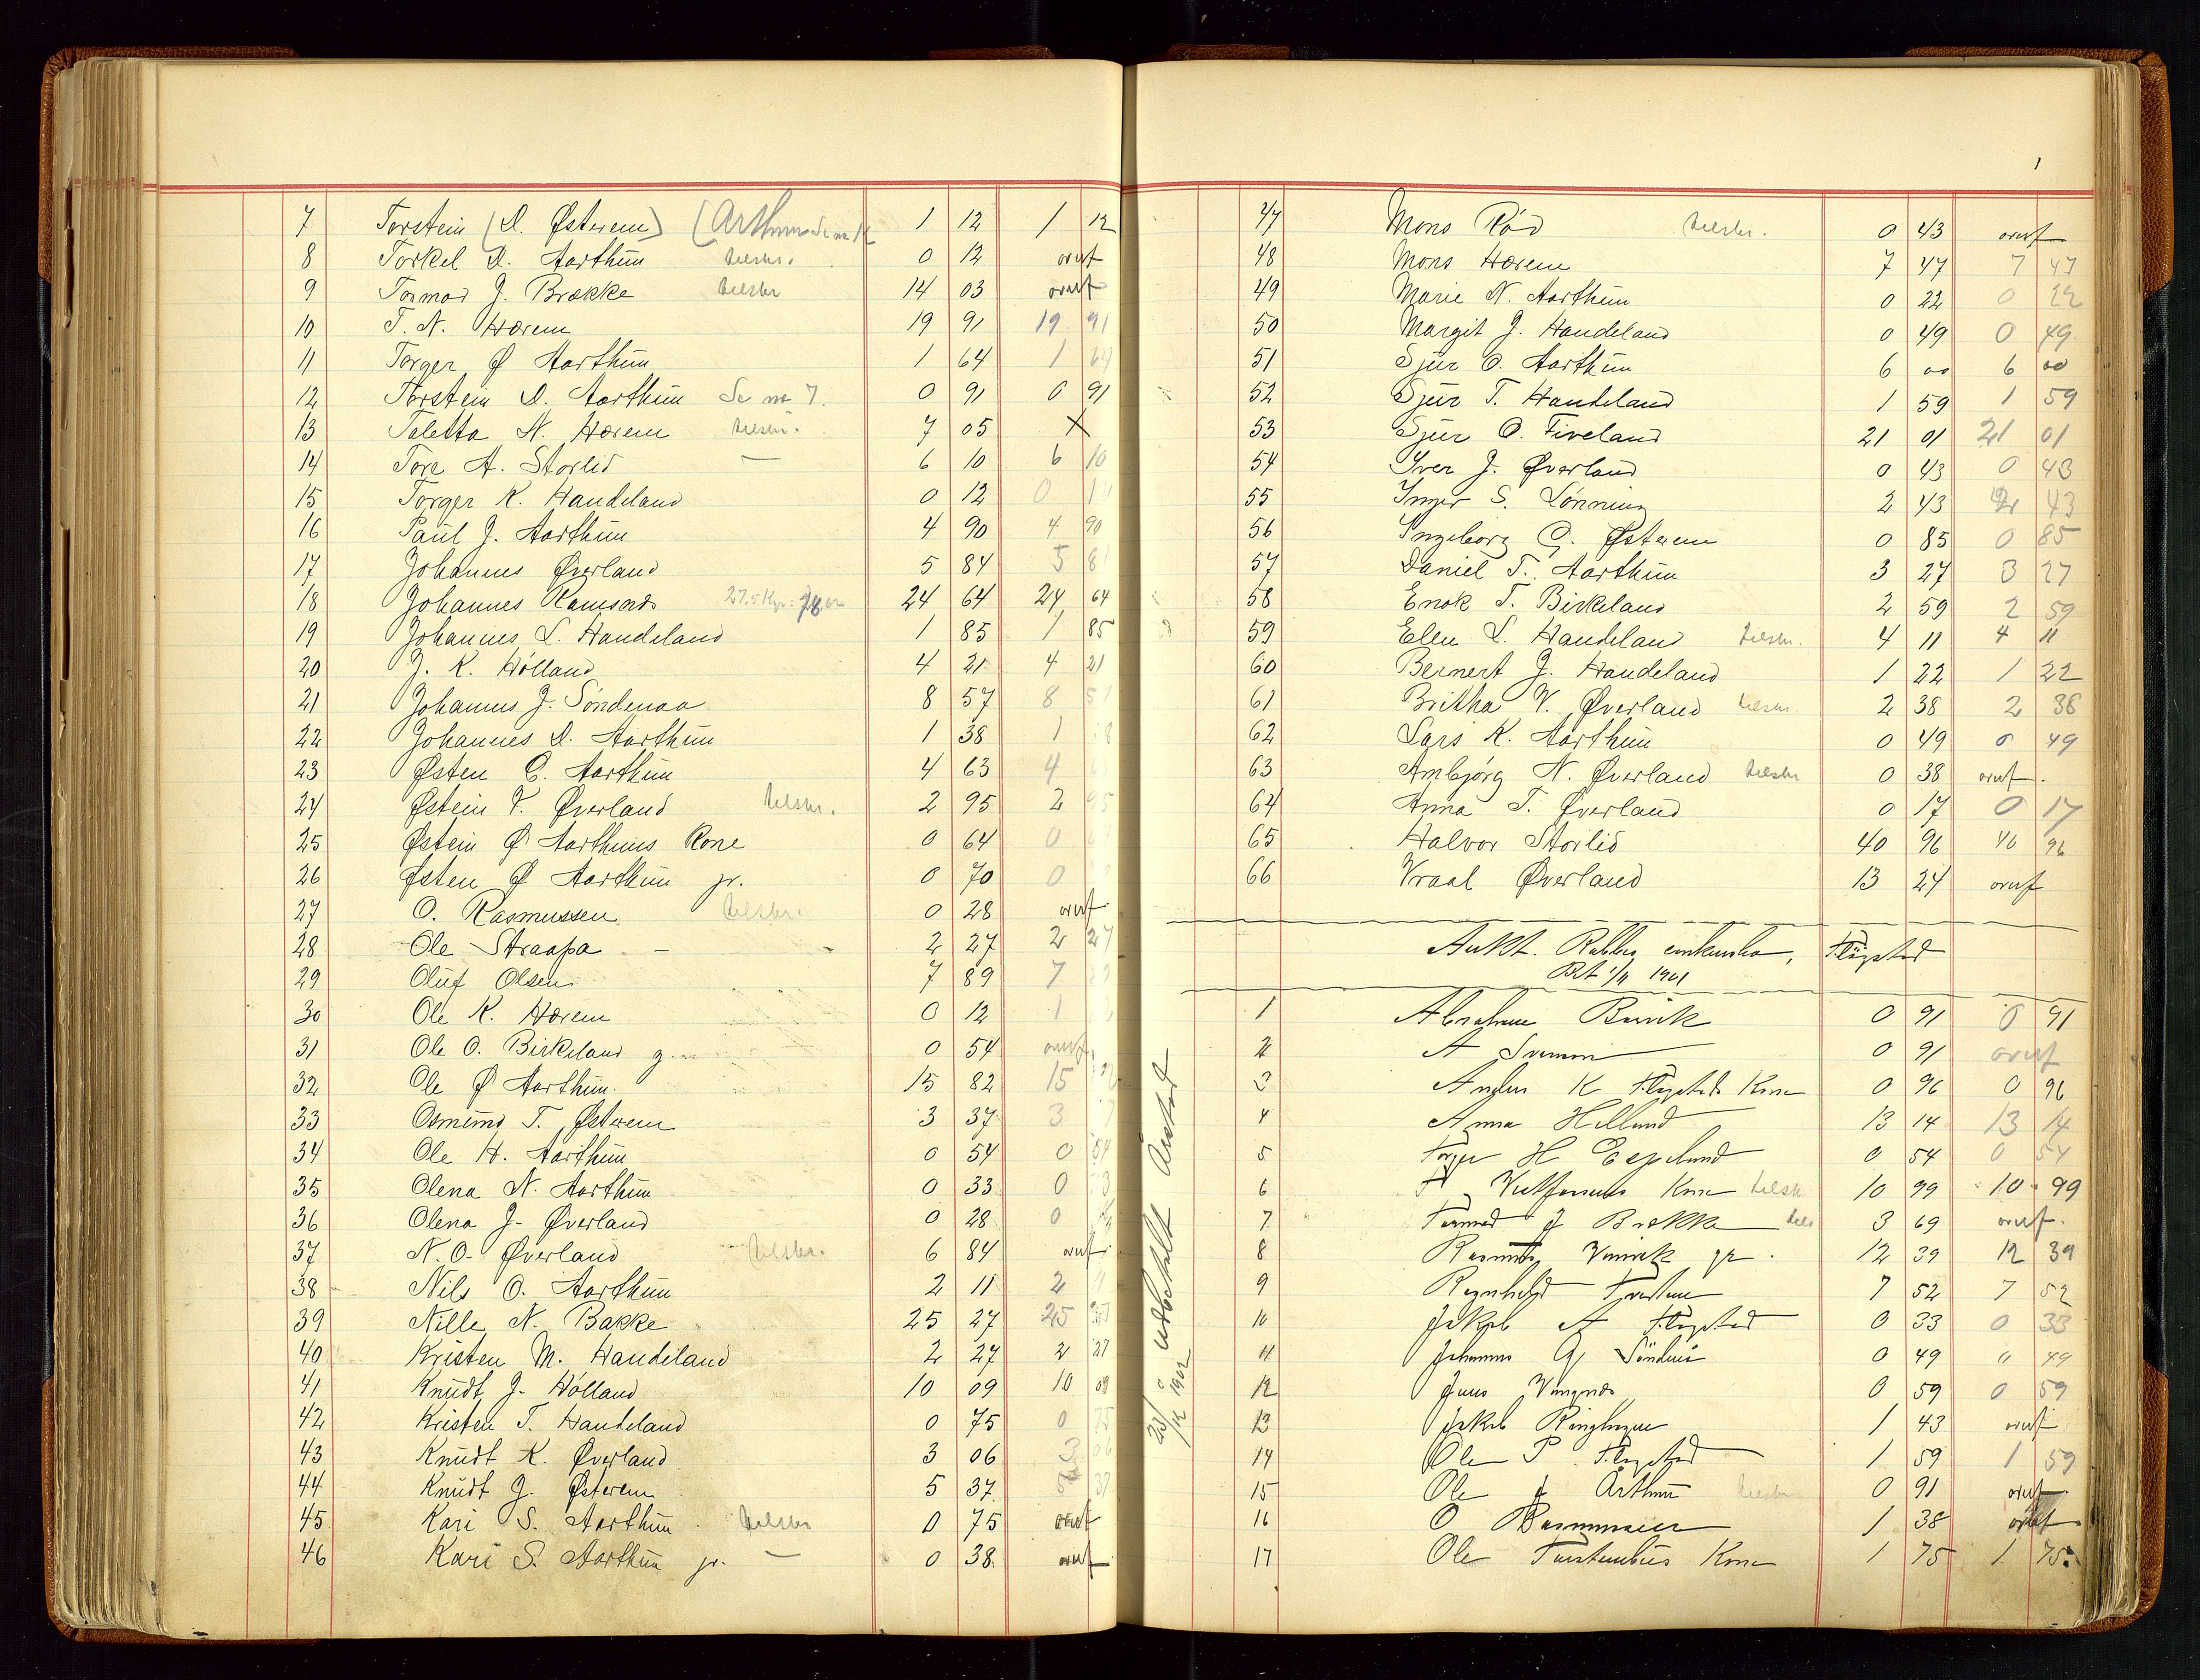 7 Torstein (D. Østrem) (Arthun Se no 12 1 12 1 12
8 Torkel D. Aarthun tilskr. 0 12 overf
9 Tormod J. Brække tilskr 14 03 overf
10 T. N. Hærem 19 91 19 91
11 Torger Ø Aarthun 1 64 1 64
12 Torstein D. Aarthun Se no 7. 0 91 0 91
13 Taletta N. Hærem tilskr. 7 05 X
14 Tore A. Storlid — 6 10 6 10
15 Torger K. Handeland 0 12 0 1
16 Paul J. Aarthun 4 90 4 90
17 Johannes Øverland 5 84 5 8
18 Johannes Ramsnes 24 64 24 64
19 Johannes L. Handeland 1 85 1 85
20 J. K. Hölland 4 21 4 21
21 Johannes J. Söndenaa 8 57 8 5
22 Johannes D. Aarthun 1 38 1 8
23 Østen E. Aarthun 4 63 4 6
24 Østein V. Øverland tilskr. 2 95 2 95
25 Østein Ø Aarthuns Kone 0 64 0 6
26 Østen Ø Aarthun jr. 0 70 0
27 O. Rasmussen tilskr. 0 28 overf
28 Ole Straapa — 2 27 2 27
29 Oluf Olsen 7 89 7
30 Ole K. Hærem 0 12 1
31 Ole O. Birkeland g. 0 54 overf
32 Ole Ø Aarthun. 15 82 15
33 Osmund T. Østrem 3 37 3 7
34 Ole H. Aarthun 0 54 0 54
35 Olena N. Aarthun 0 33 0 3
36 Olena J. Øverland 0 28 0
37 N. O. Øverland tilskr. 6 84 overf
38 Nils O. Aarthun 2 11 2 11
39 Nille N. Bakke 25 27 25 27
40 Kristen M. Handeland 2 27 2 27
41 Knudt J. Hölland 10 09 10 09
42 Kristen T. Handeland 0 75 0 75
43 Knudt K. Øverland 3 06 3 06
44 Knudt J. Østrem 5 37 5 37
45 Kari S. Aarthun tilskr 0 75 overf
46 Kari S. Aarthun jr. — 0 38 overf
47 Mons Rød tilskr. 0 43 overf
48 Mons Hærem 7 47 7 47
49 Marie N. Aarthun 0 22 0 22
50 Margit J. Handeland 0 49 0 49
51 Sjur O. Aarthun 6 00 6 00
52 Sjur T. Handeland 1 59 1 59
53 Sjur O. Fiveland 21 01 21 01
54 Iver J. Øverland 0 43 0 43
55 Inger S. Lönning 2 43 2 43
56 Ingeborg G. Østrem 0 85 0 85
57 Daniel T. Aarthun 3 27 3 27
58 Enok T. Birkeland 2 59 2 59
59 Elen L. Handeland tilskr. 4 11 4 11
60 Bernert J. Handeland 1 22 1 22
61 Britha V. Øverland tilskr. 2 38 2 38
62 Lars K. Aarthun 0 49 0 49
63 Ambjørg N. Øverland tilskr 0 38 overf.
64 Anna T. Øverland 0 17 0 17
65 Halvor Storlid 40 96 40 96
66 Vraal Øverland 13 24 overf
Aukt. Flögstad
1/11 1901
1 Abraham Birvik 0 91 0 91
2 A Svenson 0 91 overf
3 Anders K Flögstads Kone 0 96 0 96
4 Anna Hilland 13 14 13 14
5 Torger H Espeland 0 54 0 54
6 Kone tilskr 10 99 10 99
7 Tormod J Brække tils 3 69 overf.
8 Rasmus Vinvik jr. 12 39 12 39
9 7 52 7 52
10 Jakob A Flögstad 0 33 0 33
11 Johannes 0 49 " 49
12 Jens Vangsnes 0 59 0 59
13 Jakob Ringhagen 1 43 overf
14 Ole P. Flögstad 1 59 1 59
15 Ole J Arthun tilskr 0 91 overf
16 O Rasmussen 1 38 overf
17 Ole Kone 1 75 1 75
23/12 1902 udbetalt Årstad